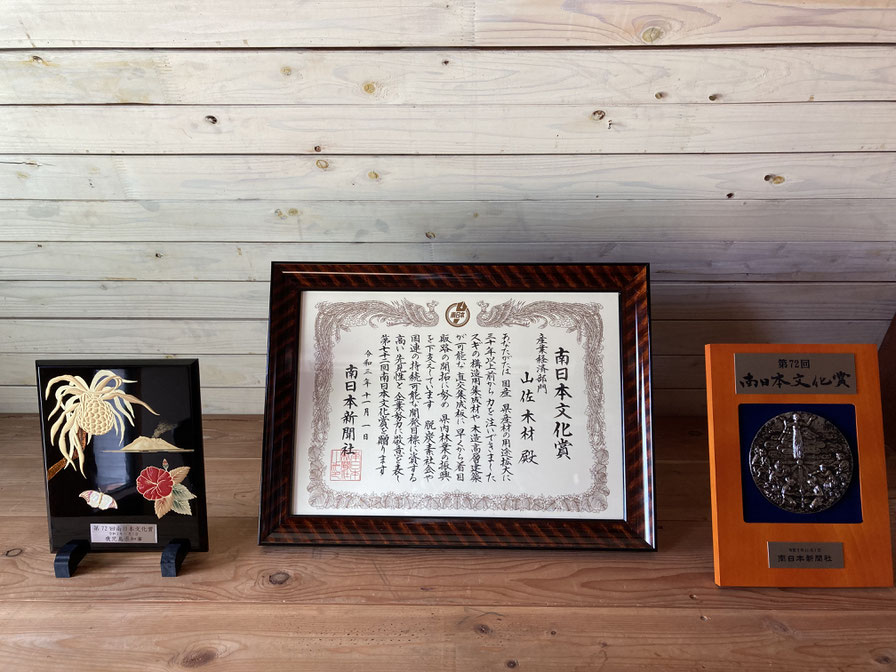 第72回南日本文化賞
鹿児島県知事
南日本
南日本文化賞
産業経済部門
山佐木材 殿
あなたがたは 国産 県産材の用途拡大に
三十年以上前から力を注いできました
スギの構造用集成材や 木造高層建築
が可能な直交集成板に早くから着目
販路の開拓に努め 県内林業の振興
を下支えしています 脱炭素社会や
国連の持続可能な開発目標に資する
高い先見性と企業努力に敬意を表し
第七十二回南日本文化賞を贈ります
令和三年十一月一日
南日本新聞社
第72回
南日本文化賞
南日本新聞社